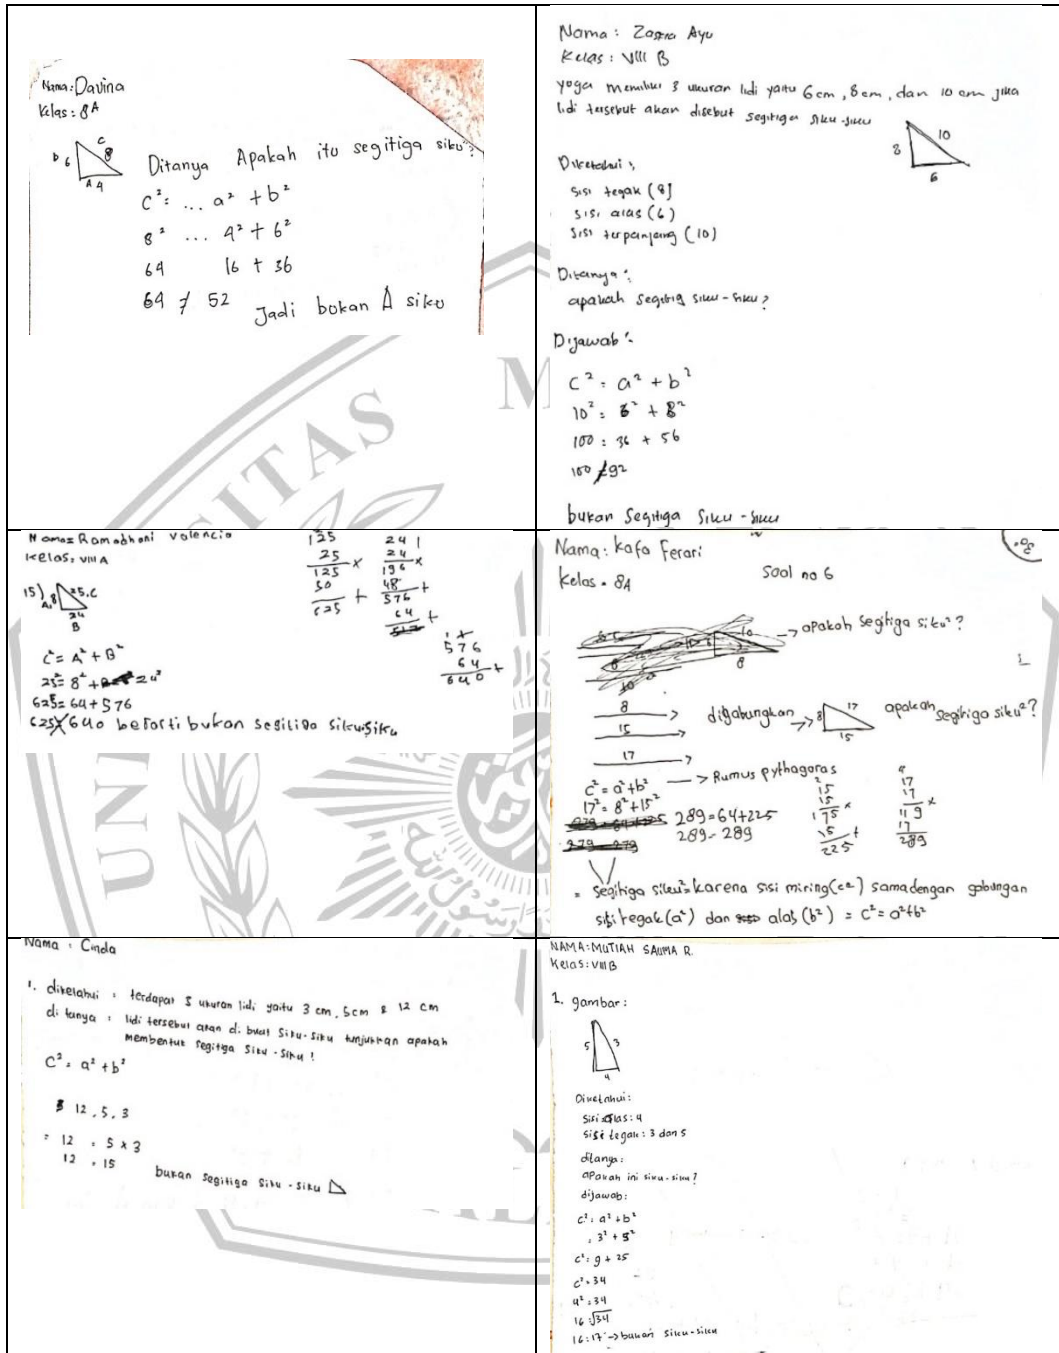 Nama: Davina
Kelas: 8A
b 6
c 8
A 4
Ditanya Apakah itu segitiga siku²?
c² = ... a² + b²
8² ... 4² + 6²
64 16 + 36
64 ≠ 52 Jadi bukan △ siku
Nama : Zasna Ayu
Kelas : VIII B
yoga memiliki 3 ukuran lidi yaitu 6 cm, 8 cm, dan 10 cm jika
lidi tersebut akan disebut segitiga siku-siku
8
10
6
Diketahui :
Sisi tegak (8)
Sisi alas (6)
Sisi terpanjang (10)
Ditanya :
apakah segitig siku-siku ?
Dijawab :
c² = a² + b²
10² = 6² + 8²
100 = 36 + 56
100 ≠ 92
bukan segitiga siku-siku
Nama= Ramadhani Valencia
Kelas= VIII A
15) A.8
25.C
24
B
c² = A² + B²
25² = 8² + 24²
625 = 64 + 576
625 ≠ 640 berarti bukan segitiga siku-siku
125
25 x
125
50 +
625
241
24 x
196
48 +
576
64 +
576
64 +
640
Nama : Kafa Ferari
Kelas = 8A
Soal no 6
30
→ apakah segitiga siku²?
10
8
8
15
17
digabungkan →
8
17
15
apakah segitiga siku²?
c² = a² + b² → Rumus pythagoras
17² = 8² + 15²
289 = 64 + 225
289 = 289
15
15 x
175
15 +
225
17
17 x
119
17
289
= segitiga siku² karena sisi miring (c²) sama dengan gabungan
sisi tegak (a²) dan alas (b²) = c² = a² + b²
Nama : Cinda
1. diketahui : terdapat 3 ukuran lidi yaitu 3 cm, 5 cm & 12 cm
di tanya : lidi tersebut akan di buat siku-siku tunjukkan apakah
membentuk segitiga siku-siku !
c² = a² + b²
12, 5, 3
= 12 = 5 x 3
12 = 15
bukan segitiga siku-siku
NAMA: MUTIAH SALMA R.
Kelas: VIII B
1. gambar :
5
3
4
Diketahui :
Sisi alas : 4
Sisi tegak : 3 dan 5
ditanya :
apakah ini siku-siku ?
dijawab :
c² = a² + b²
= 3² + 5²
c² = 9 + 25
c² = 34
4² = 34
16 = √34
16 = 17 → bukan siku-siku